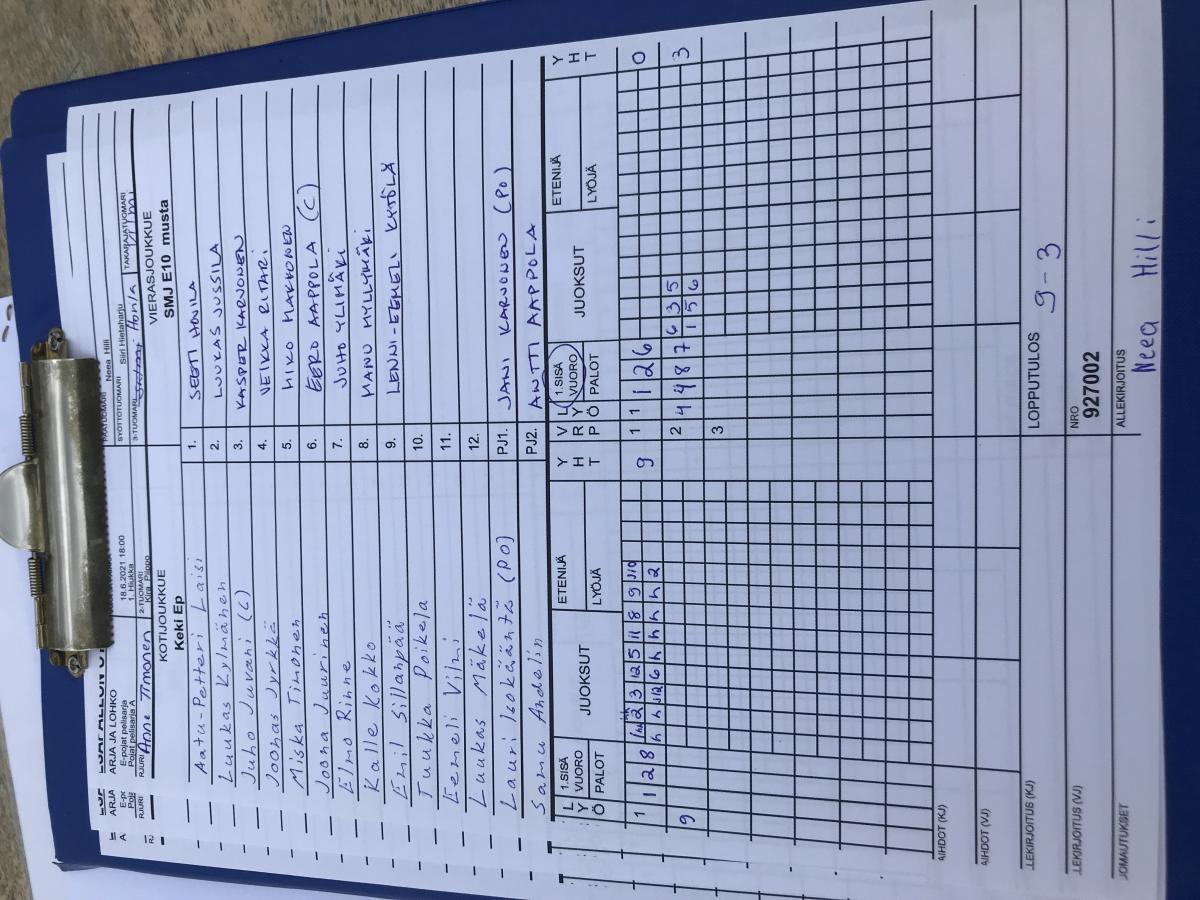 ARJA JA LOHKO
E-pojat pelisarja
Pojat pelisarja A
18.6.2021 18:00
1. Hiukka
Neea Hilli
SYÖTTÖTUOMARI Siiri Hietaharju
RJURI
Anne Timonen
2-TUOMARI
3-TUOMARI
TAKARAJATUOMARI
KOTIJOUKKUE
VIERASJOUKKUE
Keki Ep
SMJ E10 musta
Aatu-Petteri Laisi 1. SEETI HONILA
Luukas Kylmänen 2. LUUKAS JUSSILA
Juho Juvani (C) 3. KASPER KARVONEN
Joonas Jyrkkä 4. VEIKKA RITARI
Miska Timonen 5. HIKO MAKKONEN
Joona Juurinen 6. EERO AAPPOLA (C)
Elmo Rinne 7. JUHO YLIMÄKI
Kalle Kokko 8. MANU MYLLYMÄKI
Emil Sillanpää 9. LENNI-EEMELI KYTÖLÄ
Tuukka Poikela 10.
Eemeli Vilmi 11.
Luukas Mäkelä 12.
Lauri Isokääntä (PO) PJ1. JANI KARVONEN (PO)
Samu Andelin PJ2. ANTTI AAPPOLA
L Y Ö 1.SISÄ VUORO PALOT JUOKSUT ETENIJÄ LYÖJÄ Y H T V R P L Y Ö 1.SISÄ VUORO PALOT JUOKSUT ETENIJÄ LYÖJÄ Y H T
1 1 2 8 2 3 12 5 11 8 9 9 1 1 1 2 6 0
h h 6 h h h h 2
9 2 4 4 8 7 6 3 5 3
1 5 6
3
AIHDOT (KJ)
AIHDOT (VJ)
LEKIRJOITUS (KJ)
LOPPUTULOS
9-3
LEKIRJOITUS (VJ)
NRO
927002
JOMAUTUKSET
ALLEKIRJOITUS
Neea Hilli